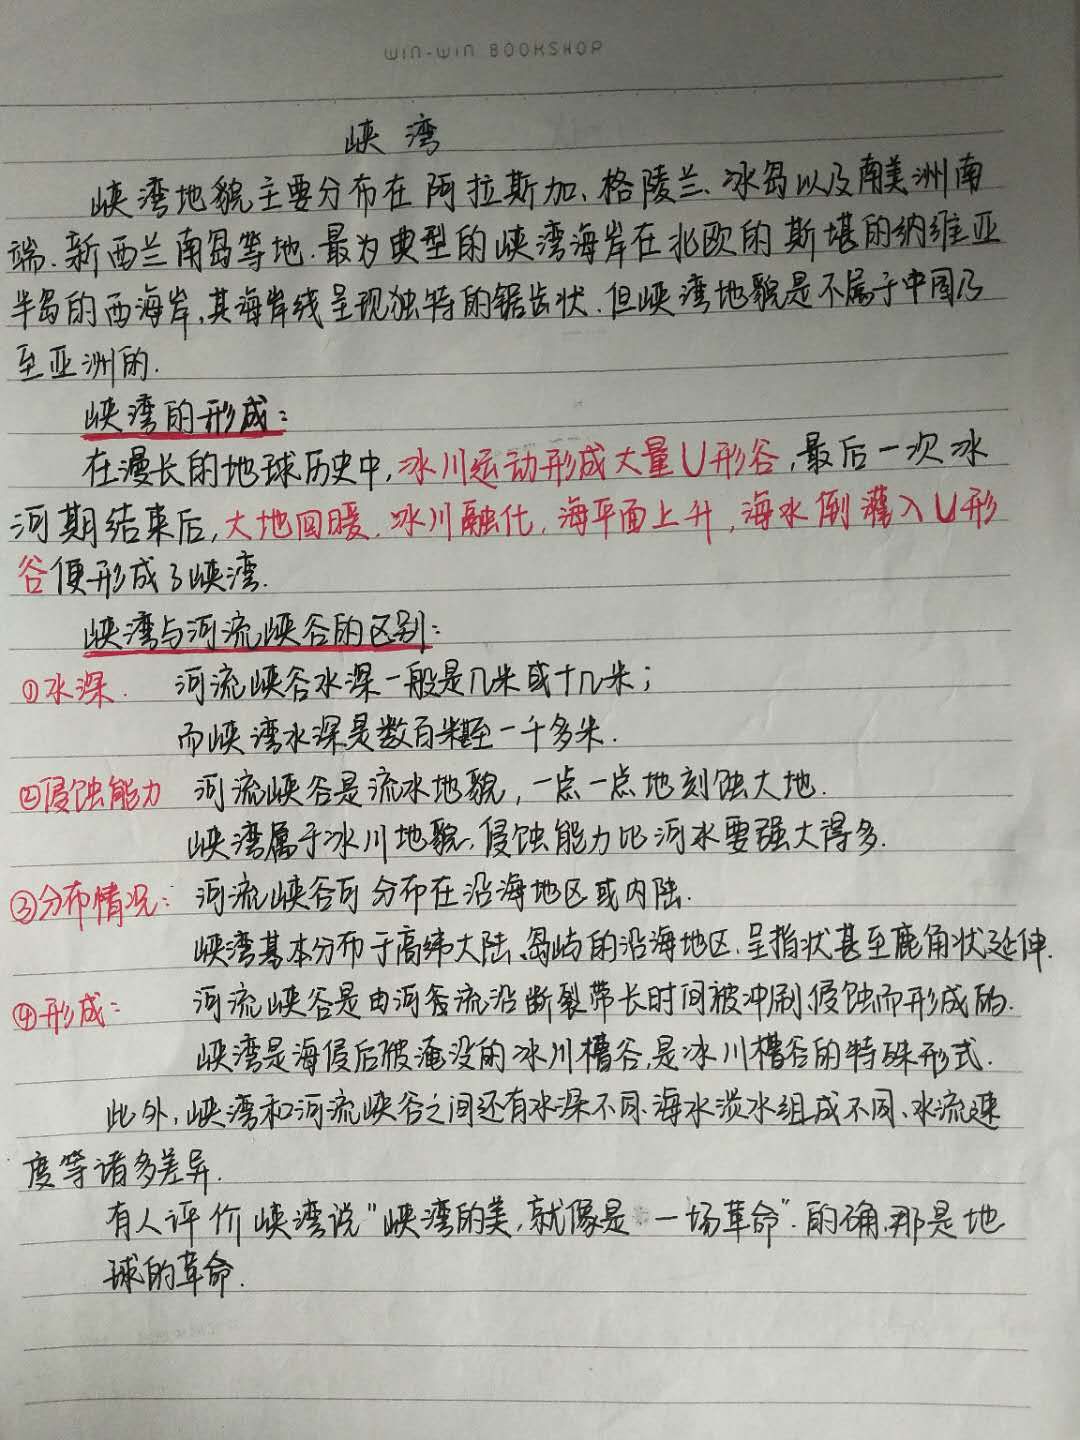 WIN-WIN BOOKSHOP
峡 湾
峡湾地貌主要分布在阿拉斯加、格陵兰、冰岛以及南美洲南
端、新西兰南岛等地.最为典型的峡湾海岸在北欧的斯堪的纳维亚
半岛的西海岸,其海岸线呈现独特的锯齿状.但峡湾地貌是不属于中国乃
至亚洲的.
峡湾的形成:
在漫长的地球历史中,冰川运动形成大量U形谷,最后一次冰
河期结束后,大地回暖.冰川融化,海平面上升,海水倒灌入U形
谷便形成了峡湾.
峡湾与河流峡谷的区别:
①水深. 河流峡谷水深一般是几米或十几米;
而峡湾水深是数百米甚至一千多米.
②侵蚀能力 河流峡谷是流水地貌,一点一点地刻蚀大地.
峡湾属于冰川地貌,侵蚀能力比河水要强大得多.
③分布情况: 河流峡谷可分布在沿海地区或内陆.
峡湾基本分布于高纬大陆、岛屿的沿海地区.呈指状甚至鹿角状延伸.
④形成: 河流峡谷是由河流沿断裂带长时间被冲刷、侵蚀而形成的.
峡湾是海侵后被淹没的冰川槽谷,是冰川槽谷的特殊形式.
此外,峡湾和河流峡谷之间还有水深不同、海水淡水组成不同、水流速
度等诸多差异.
有人评价峡湾说"峡湾的美,就像是一场革命".的确,那是地
球的革命.